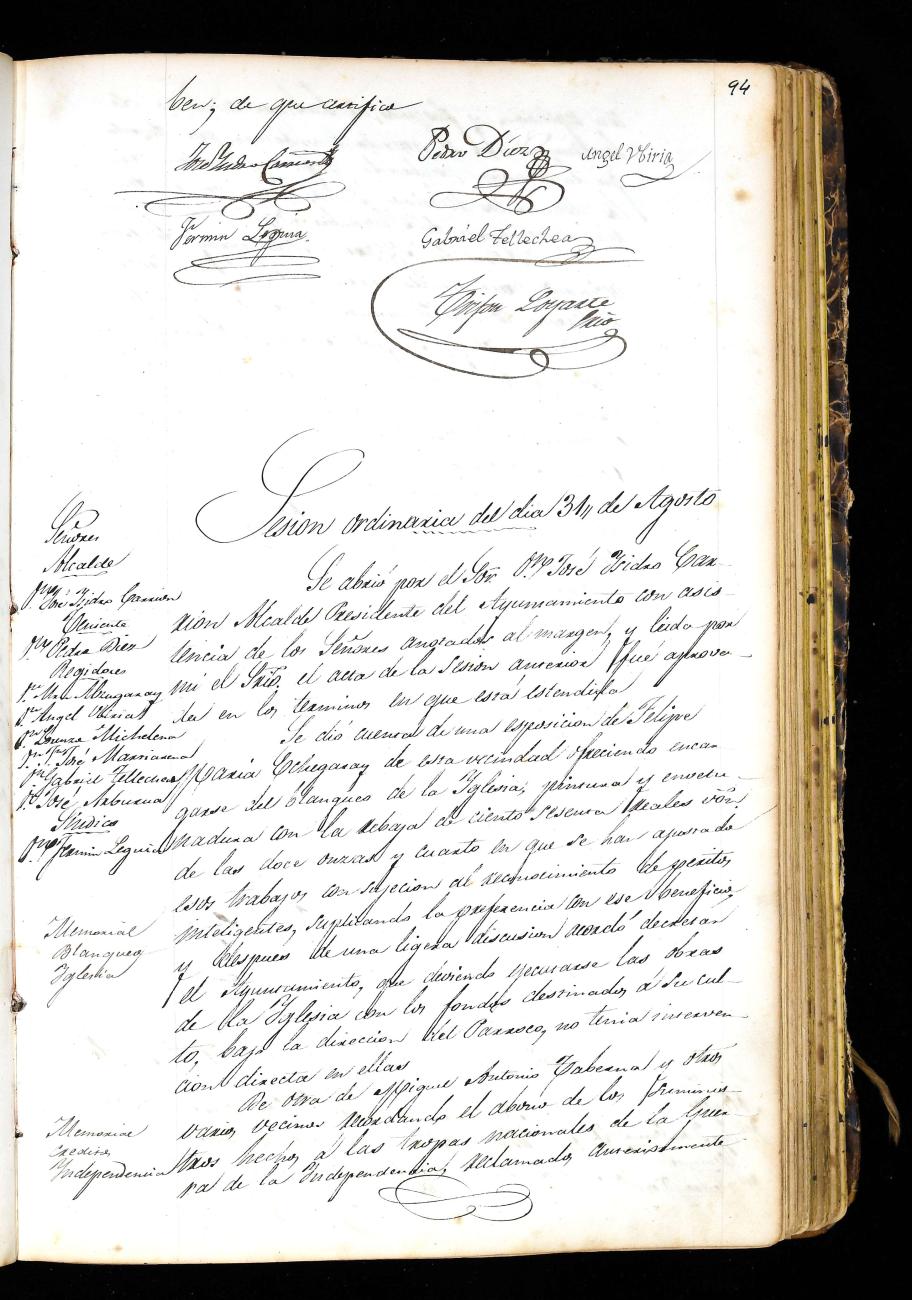 94
ben; de que certifico
José Ysidro Carrion
Pedro Díez
Angel Viria
Fermin Leguia
Gabriel Tellechea
Loyarte
Srio
Sesion ordinaria del dia 31,, de Agosto
Señores
Alcalde
Dn José Ysidro Carrion
Teniente
Dn Pedro Diez
Regidores
Dn Angel Viria
Dn Lorenzo Michelena
Dn José Mariarena
Dn Gabriel Tellechea
Dn José Arburua
Sindico
Dn Fermin Leguia
Se abrió por el Sor. Dn José Ysidro Car-
rion Alcalde Presidente del Ayuntamiento con asis-
tencia de los Señores anotados al margen, y leida por
mi el Srio. el acta de la Sesion anterior fué aprova-
da en los terminos en que está estendida
Se dió cuenta de una esposicion de Felipe
Maria Echegaray de esta vecindad ofreciendo encar
garse del blanqueo de la Yglesia, pintura y envetu-
nadura con la rebaja de ciento sesenta reales von.
de las doce onzas y cuarto en que se han ajustado
esos trabajos con sujecion al reconocimiento de peritos
inteligentes, suplicando la preferencia con ese beneficio,
y despues de una ligera discusion acordó decretar
el Ayuntamiento, que deviendo ejecutarse las obras
de la Yglesia con los fondos destinados á su cul-
to, bajo la direccion del Parroco, no tenia interven-
cion directa en ellas
Memorial
Blanqueo
Yglesia
De otra de Miguel Antonio Taberna y otros
varios vecinos recordando el abono de los Suminis-
tros hechos á las tropas nacionales de la Guer-
ra de la Independencia, reclamados anteriormente
Memorial
creditos
Independencia